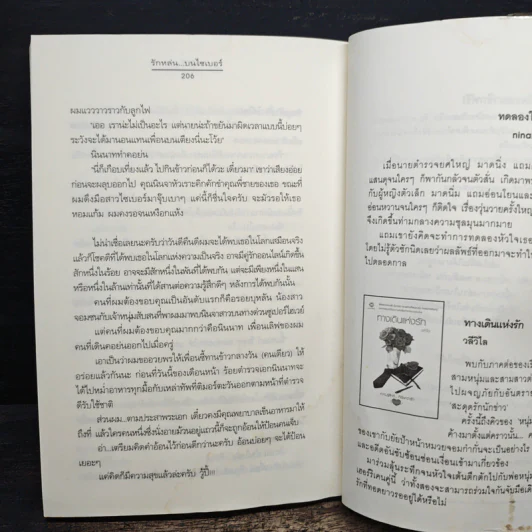 รักหล่น...บนไซเบอร์
206
ผมแวววาวราวกับลูกไฟ
"เออ เราน่ะไม่เป็นอะไร แต่นายน่ะถ้าขยันมาผิดเวลาแบบนี้บ่อยๆ
ระวังจะได้มานอนแทนเพื่อนบนเตียงนี่นะโว้ย"
นินนาททำคอย่น
"นี่ก็เกือบเที่ยงแล้ว ไปกินข้าวก่อนก็ได้วะ เดี๋ยวมา" เขาว่าเสียงอ่อย
ก่อนจะผลุบออกไป คุณนินจาหัวเราะคิกคักขำคุณพี่ชายของเธอ ขณะที่
ผมดึงมือสาวไซเบอร์มาจุ๊บเบาๆ แค่นี้ก็ชื่นใจครับ จะมัวรอให้เธอ
หอมแก้ม ผมคงรอจนเหงือกแห้ง
ไม่น่าเชื่อเลยนะครับว่าวันดีคืนดีผมจะได้พบเธอในโลกเสมือนจริง
แล้วก็โชคดีที่ได้พบเธอในโลกแห่งความเป็นจริง อาจมีคู่รักออนไลน์เกิดขึ้น
สักหนึ่งในร้อย อาจจะมีสักหนึ่งในพันที่ได้พบกัน แต่จะมีเพียงหนึ่งในแสน
หรือหนึ่งในล้านเท่านั้นที่ได้สานต่อความรู้สึกดีๆ หลังการได้พบกันนั้น
คนที่ผมต้องขอบคุณเป็นอันดับแรกก็คือรอยบุหลัน น้องสาว
จอมซนกับเจ้าหนุ่มสับสนที่พาผมมาพบนินจาสาวบนทางด่วนซูเปอร์ไฮเวย์
แต่คนที่ผมต้องขอบคุณมากกว่าคือนินนาท เพื่อนเลิฟของผม
คนที่เดินคอย่นออกไปเมื่อครู่
เอาเป็นว่าผมขออวยพรให้เพื่อนซี้ทานข้าวกลางวัน (คนเดียว) ให้
อร่อยแล้วกันนะ ก่อนที่วันนี้ของเดือนหน้า ร้อยตำรวจเอกนินนาทจะ
ได้ไปหม่ำอาหารทุกมื้อกับเหล่าทัพที่ติมอร์ตะวันออกตามหน้าที่ตำรวจ
ดีรับใช้ชาติ
ส่วนผม...ตามประสาพระเอก เดี๋ยวคงมีคุณพยาบาลเข็นอาหารมาให้
ถึงที่ แล้วใครคนหนึ่งซึ่งนั่งอายม้วนอยู่แถวนี้ก็จะถูกอ้อนให้ป้อนคนเจ็บ
อ๋า...เตรียมคิดคำอ้อนไว้ก่อนดีกว่านะครับ อ้อนบ่อยๆ จะได้ป้อน
เยอะๆ
แค่คิดก็มีความสุขแล้วล่ะครับ รู้ปี๊!!!
nina
เมื่อนายตำรวจยศใหญ่ มาดนิ่ง แถม
แสนดุจนใครๆ ก็พากันกลัวจนตัวสั่น เกิดมาพ
กับผู้หญิงตัวเล็ก มาดนิ่ม แถมอ่อนโยนและ
อ่อนหวานจนใครๆ ก็ติดใจ เรื่องวุ่นวายครั้งใหญ่
จึงเกิดขึ้นท่ามกลางความชุลมุนมากมาย
แถมเขายังคิดจะทำการทดลองหัวใจเธอ
โดยไม่รู้ตัวซักนิดเลยว่าผลลัพธ์ที่ออกมาจะทำให้
ไปตลอดกาล
ทางเดินแห่งรัก
ทางเดินแห่งรัก
วลีวิไล
พบกับภาคต่อของเรื่
สามหนุ่มและสามสาวต้
ไปผจญภัยกับอันตราย
สะดุดรักนักข่าว'
ครั้งนี้ถึงคิวของ 'หนุ่
ค้างมาตั้งแต่คราวนั้น...
ของเขากับยัยป้าหน้าหมวยจอมกำกันจะเป็นอย่างไร
และอดีตอันซับซ้อนซ่อนเงื่อนเข้ามาเกี่ยวข้อง
มาร่วมลุ้นระทึกจนหัวใจเต้นตึกตักไปกับพ่อหนุ่ม
เฮอร์ริเคนคู่นี้ ว่าทั้งสองจะสามารถร่วมใจกันจับมือเดิ
รักที่ทอดยาวรออยู่ได้หรือไม่